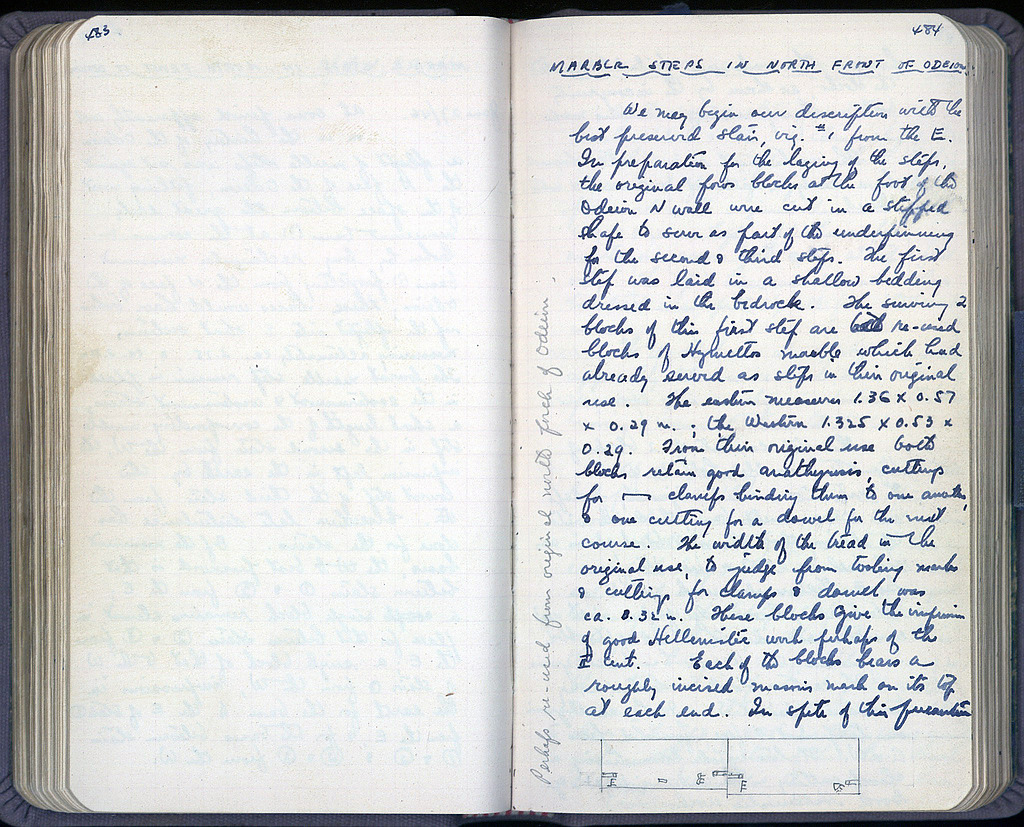 483
484
MARBLE STEPS IN NORTH FRONT OF ODEION.
We may begin our description with the
best preserved stair, viz. #1 from the E.
In preparation for the laying of the steps,
the original poros blocks at the foot of the
Odeion N wall were cut in a stepped
shape to serve as part of the underpinning
for the second & third steps. The first
step was laid in a shallow bedding
dressed in the bedrock. The surviving 2
blocks of this first step are both re-used
blocks of Hymettos marble which had
already served as steps in their original
use. The eastern measures 1.36 x 0.57
x 0.29 m.; the Western 1.325 x 0.53 x
0.29. From their original use both
blocks retain good anathyrosis, cuttings
for clamps binding them to one another
& one cutting for a dowel for the next
course. The width of the tread in the
original use, to judge from tooling marks
& cuttings for clamps & dowel was
ca. 0.32 m. These blocks give the impression
of good Hellenistic work perhaps of the
cent. Each of the blocks bears a
roughly incised mason's mark on its top
at each end. In spite of this precaution
Perhaps re-used from original north porch of Odeion.